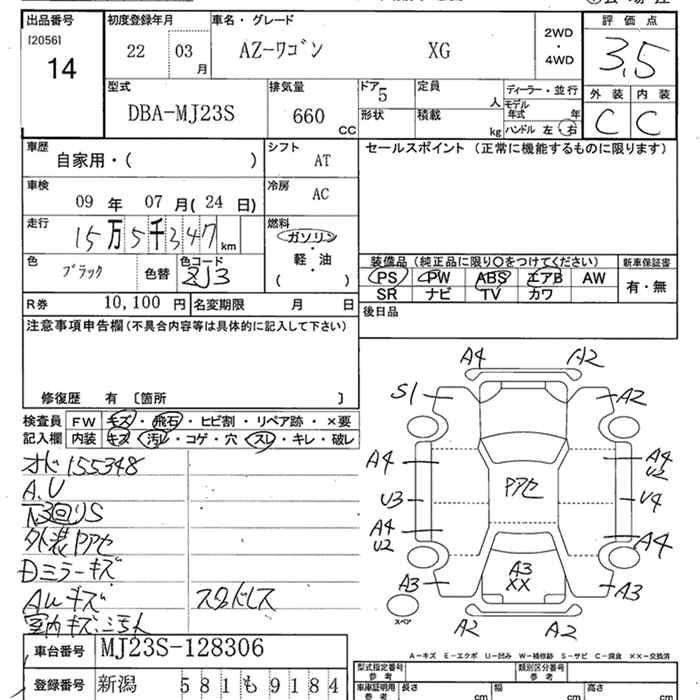 出品番号 初度登録年月 車名・グレード 評価点
[2056] 14
22 03 月
AZ-ワゴン XG
2WD ・ 4WD
3.5
型式 DBA-MJ23S
排気量 660 CC
ドア 5 定員 人
形状 積載 kg
ディーラー・並行
モデル年式 年
ハンドル 左・右
外装 内装
C C
車歴 自家用・( )
シフト AT
セールスポイント (正常に機能するものに限ります)
車検 09 年 07 月(24 日)
冷房 AC
走行 15万5千347 km
燃料 ガソリン ・ 軽・油 ( )
色 ブラック 色替 色コード ZJ3
装備品 (純正品に限り○をつけてください) 新車保証書
PS PW ABS エアB AW 有・無
SR ナビ TV カワ
R券 10,100 円 名変期限 月 日
後日品
注意事項申告欄 (不具合内容等は具体的に記入して下さい)
修復歴 有 〔箇所 〕
検査員 FW キズ・飛石・ヒビ割・リペア跡・×要
記入欄 内装 キズ・汚レ・コゲ・穴・スレ・キレ・破レ
オド155348
A.U
下3回りS
外装Pアセ
Dミラーキズ
AWキズ スタッドレス
室内キズ・汚れ
A4 A2
S1 A2
A4 A4 U2
U3 Pアセ U4
A4 U2 A4
A3 A3 XX A3
スペア A2 A2
A-キズ E-エクボ U-凹み W-補修跡 S-サビ C-腐食 XX-交換済
車台番号 MJ23S-128306
型式指定番号 参考 類別区分番号 参考
登録番号 新潟 581 も 9184
車庫証明用 参考 長さ cm 幅 cm 高さ cm